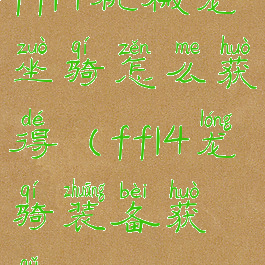 ff14机械龙
zuò qí zěn me huò
坐骑怎么获
dé lóng
得（ff14龙
qí zhuāng bèi huò
骑装备获